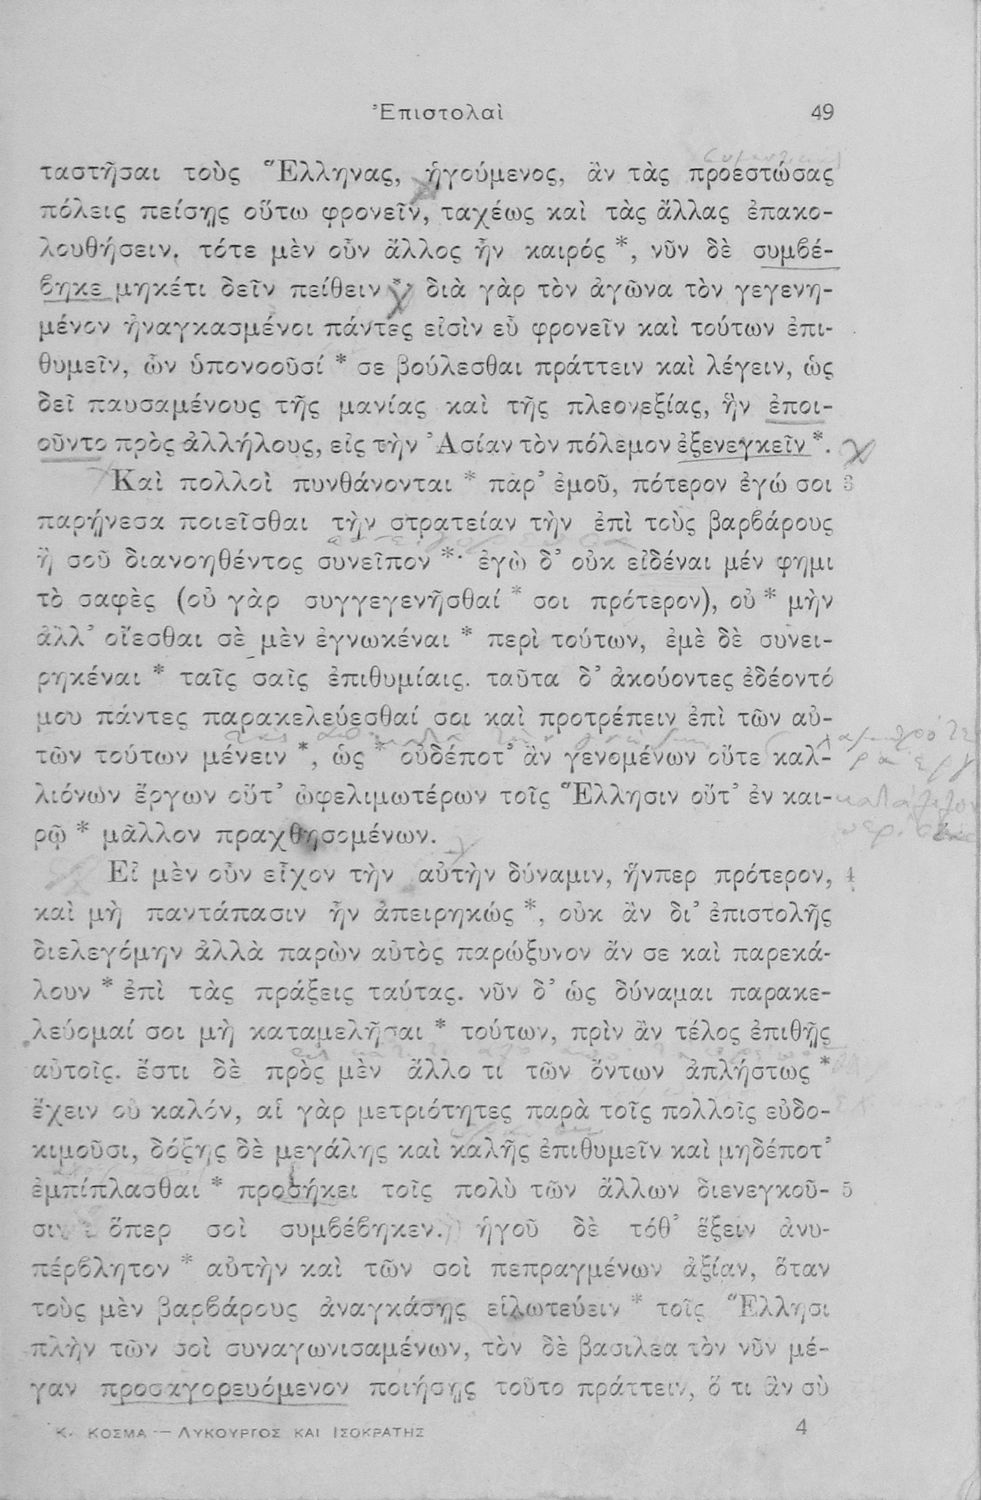 Ἐπιστολαὶ 49
ταστῆσαι τοὺς Ἕλληνας, ἡγούμενος, ἂν τὰς προεστώσας
πόλεις πείσῃς οὕτω φρονεῖν, ταχέως καὶ τὰς ἄλλας ἐπακο-
λουθήσειν, τότε μὲν οὖν ἄλλος ἦν καιρός *, νῦν δὲ συμβέ-
βηκε μηκέτι δεῖν πείθειν· διὰ γὰρ τὸν ἀγῶνα τὸν γεγενη-
μένον ἠναγκασμένοι πάντες εἰσὶν εὖ φρονεῖν καὶ τούτων ἐπι-
θυμεῖν, ὧν ὑπονοοῦσί * σε βούλεσθαι πράττειν καὶ λέγειν, ὡς
δεῖ παυσαμένους τῆς μανίας καὶ τῆς πλεονεξίας, ἣν ἐποι-
οῦντο πρὸς ἀλλήλους, εἰς τὴν Ἀσίαν τὸν πόλεμον ἐξενεγκεῖν *.
Καὶ πολλοὶ πυνθάνονται * παρ' ἐμοῦ, πότερον ἐγώ σοι 3
παρῄνεσα ποιεῖσθαι τὴν στρατείαν τὴν ἐπὶ τοὺς βαρβάρους
ἢ σοῦ διανοηθέντος συνεῖπον *· ἐγὼ δ' οὐκ εἰδέναι μέν φημι
τὸ σαφὲς (οὐ γὰρ συγγεγενῆσθαί * σοι πρότερον), οὐ * μὴν
ἀλλ' οἴεσθαι σὲ μὲν ἐγνωκέναι * περὶ τούτων, ἐμὲ δὲ συνει-
ρηκέναι * ταῖς σαῖς ἐπιθυμίαις. ταῦτα δ' ἀκούοντες ἐδέοντό
μου πάντες παρακελεύεσθαί σοι καὶ προτρέπειν ἐπὶ τῶν αὐ-
τῶν τούτων μένειν *, ὡς * οὐδέποτ' ἂν γενομένων οὔτε καλ-
λιόνων ἔργων οὔτ' ὠφελιμωτέρων τοῖς Ἕλλησιν οὔτ' ἐν και-
ρῷ * μᾶλλον πραχθησομένων.
Εἰ μὲν οὖν εἶχον τὴν αὐτὴν δύναμιν, ἥνπερ πρότερον, 4
καὶ μὴ παντάπασιν ἦν ἀπειρηκώς *, οὐκ ἂν δι' ἐπιστολῆς
διελεγόμην ἀλλὰ παρὼν αὐτὸς παρώξυνον ἄν σε καὶ παρεκά-
λουν * ἐπὶ τὰς πράξεις ταύτας. νῦν δ' ὡς δύναμαι παρακε-
λεύομαί σοι μὴ καταμελῆσαι * τούτων, πρὶν ἂν τέλος ἐπιθῇς
αὐτοῖς. ἔστι δὲ πρὸς μὲν ἄλλο τι τῶν ὄντων ἀπλήστως *
ἔχειν οὐ καλόν, αἱ γὰρ μετριότητες παρὰ τοῖς πολλοῖς εὐδο-
κιμοῦσι, δόξης δὲ μεγάλης καὶ καλῆς ἐπιθυμεῖν καὶ μηδέποτ'
ἐμπίπλασθαι * προσήκει τοῖς πολὺ τῶν ἄλλων διενεγκοῦ- 5
σιν· ὅπερ σοὶ συμβέβηκεν. ἡγοῦ δὲ τόθ' ἕξειν ἀνυ-
πέρβλητον * αὐτὴν καὶ τῶν σοὶ πεπραγμένων ἀξίαν, ὅταν
τοὺς μὲν βαρβάρους ἀναγκάσῃς εἱλωτεύειν * τοῖς Ἕλλησι
πλὴν τῶν σοὶ συναγωνισαμένων, τὸν δὲ βασιλέα τὸν νῦν μέ-
γαν προσαγορευόμενον ποιήσῃς τοῦτο πράττειν, ὅ τι ἂν σὺ
Κ. ΚΟΣΜΑ — ΛΥΚΟΥΡΓΟΣ ΚΑΙ ΙΣΟΚΡΑΤΗΣ 4